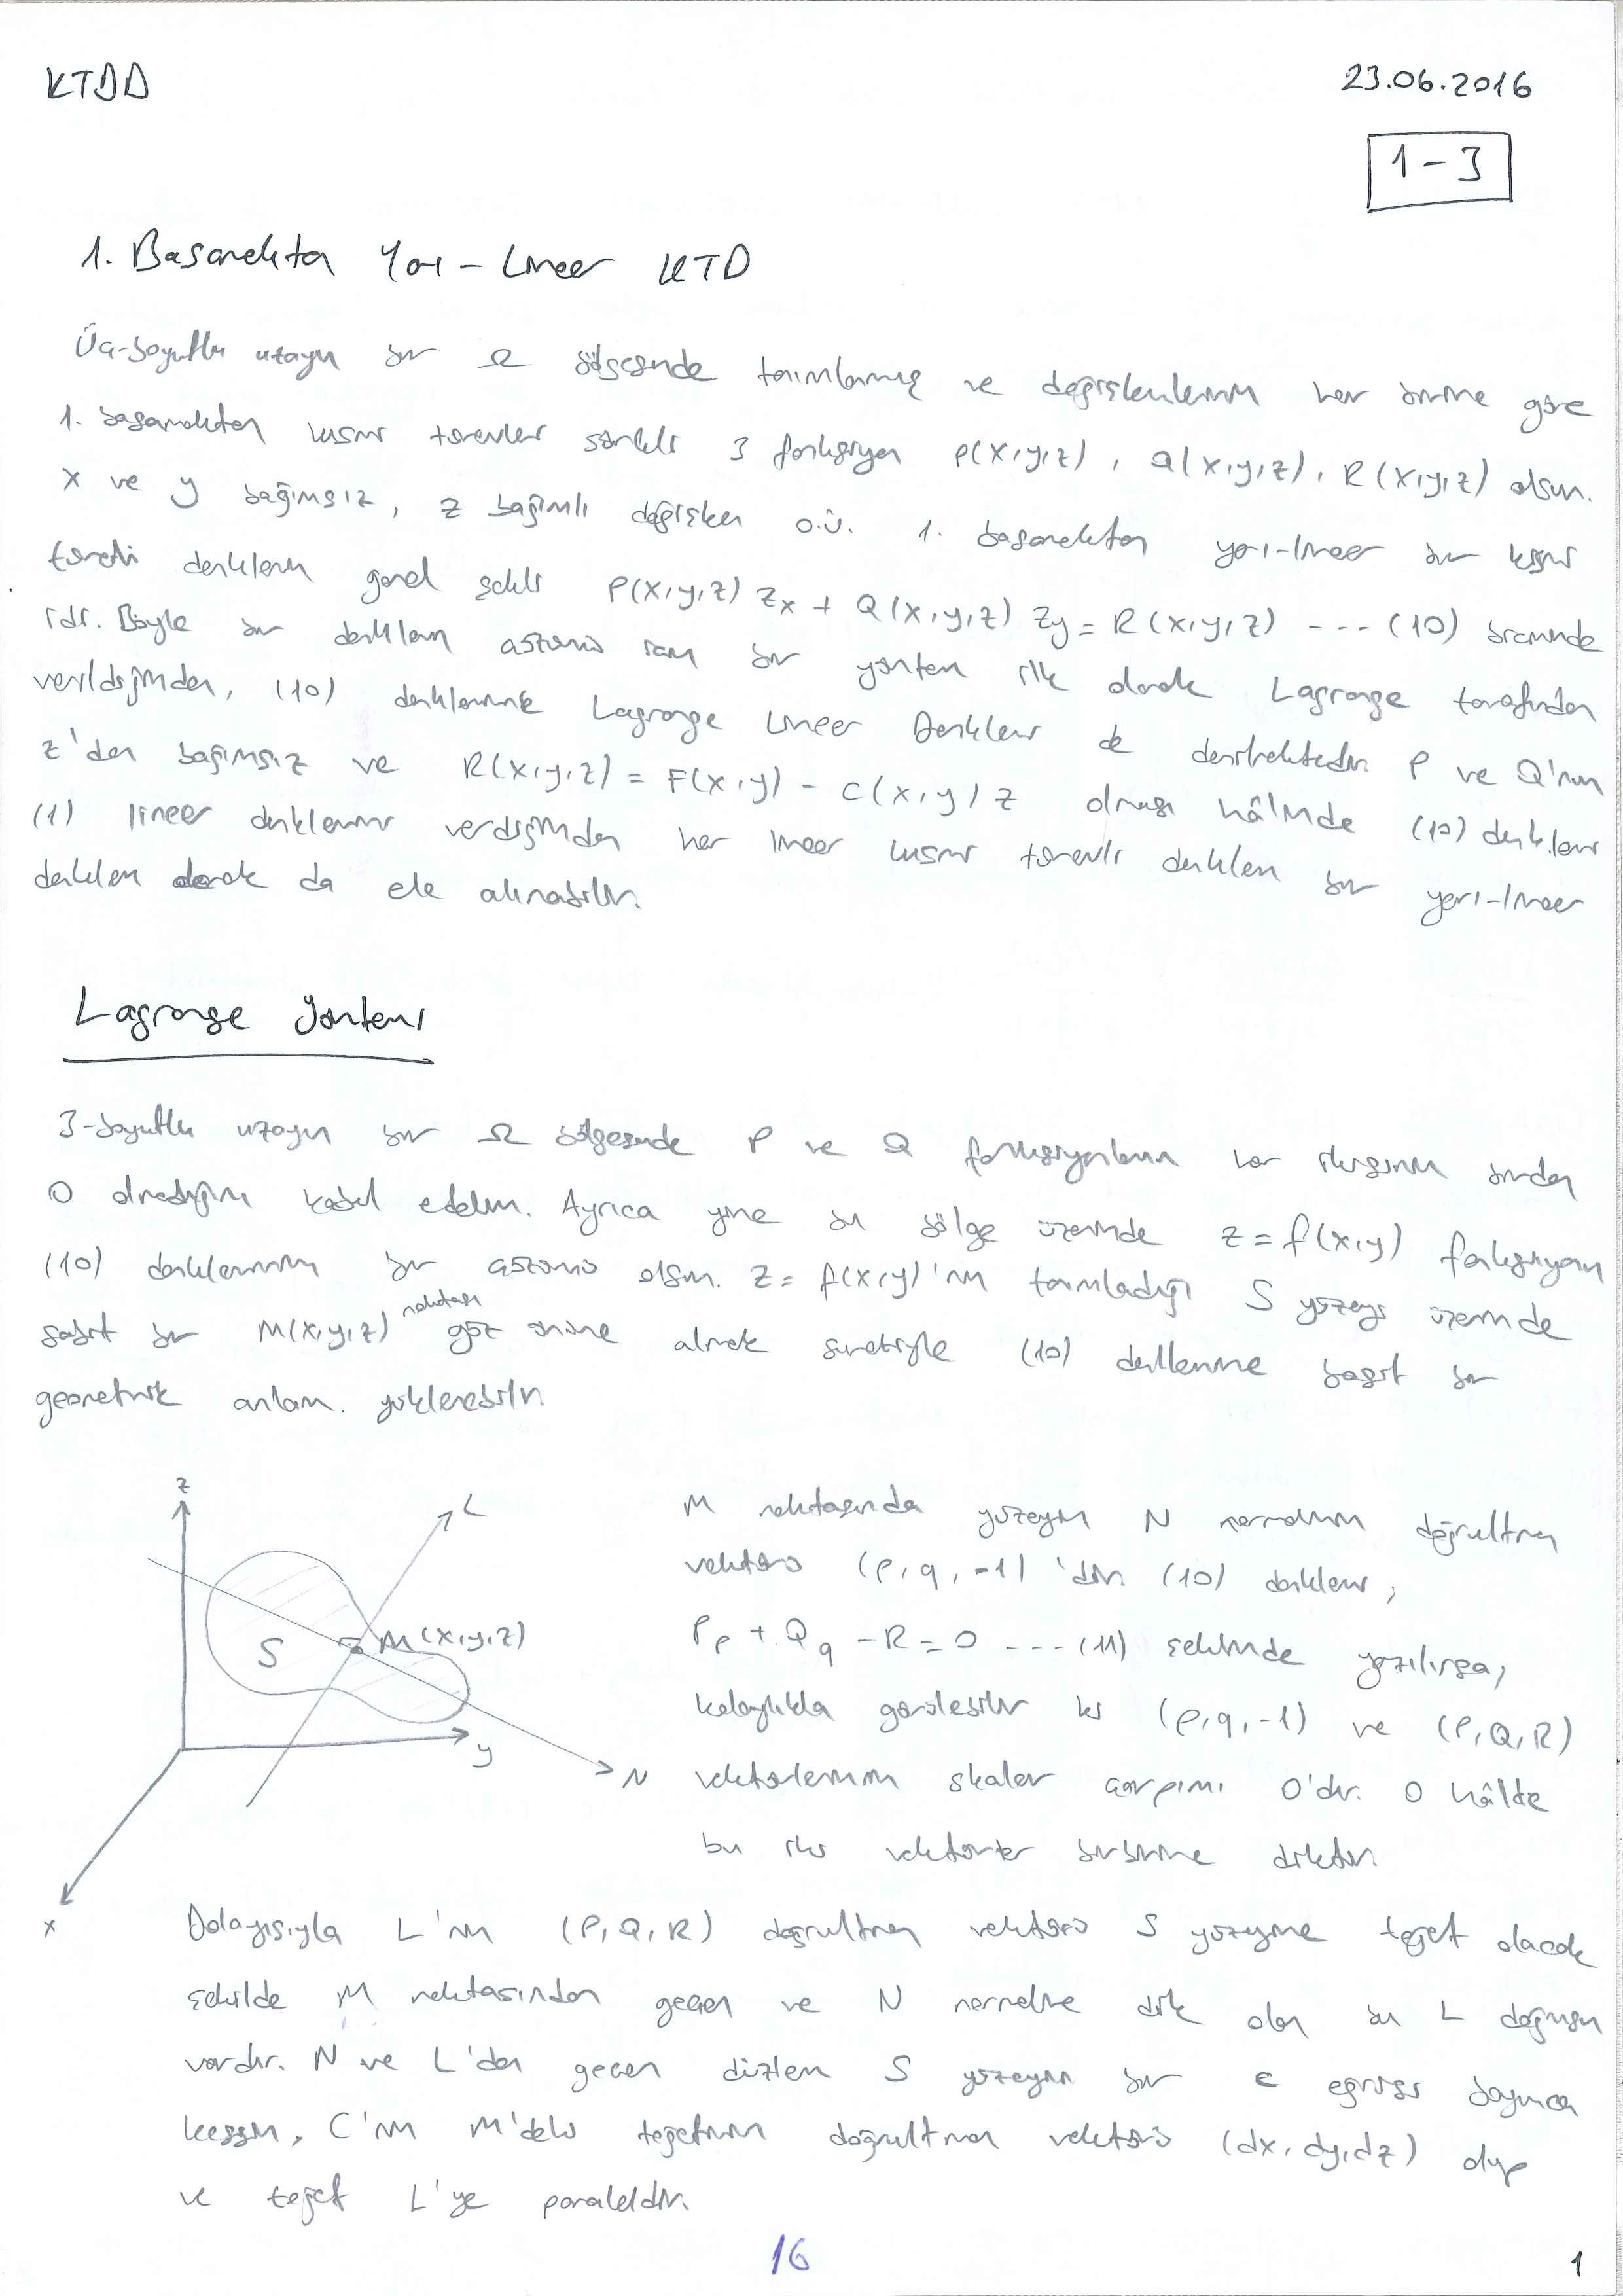 KTDD
23.06.2016
1-3
1. Basamaktan Yarı-Lineer KTD
Üç-boyutlu uzayın bir Ω bölgesinde tanımlanmış ve değişkenlerinin her birine göre
1. basamaktan kısmi türevleri sürekli 3 fonksiyon P(x,y,z), Q(x,y,z), R(x,y,z) olsun.
x ve y bağımsız, z bağımlı değişken o.ü. 1. basamaktan yarı-lineer bir kısmi
türevli denklemin genel şekli P(x,y,z) zx + Q(x,y,z) zy = R(x,y,z) --- (10) biçiminde
idi. Böyle bir denklemin çözümü için bir yöntem ilk olarak Lagrange tarafından
verildiğinden, (10) denklemine Lagrange Lineer Denklemi de denilmektedir. P ve Q'nun
z'den bağımsız ve R(x,y,z) = F(x,y) - C(x,y) z olması hâlinde (10) denklemi
(1) lineer denklemini verdiğinden her lineer kısmi türevli denklem bir yarı-lineer
denklem olarak da ele alınabilir.
Lagrange Yöntemi
3-boyutlu uzayın bir Ω bölgesinde P ve Q fonksiyonlarının her ikisinin birden
0 olmadığını kabul edelim. Ayrıca yine bu bölge üzerinde z = f(x,y) fonksiyonu
(10) denkleminin bir çözümü olsun. z = f(x,y)'nin tanımladığı S yüzeyi üzerinde
sabit bir M(x,y,z) noktası göz önüne almak suretiyle (10) denklemine basit bir
geometrik anlam yüklenebilir.
z
L
M(x,y,z)
S
y
N
x
M noktasında yüzeyin N normalinin doğrultman
vektörü (p,q,-1)'dir. (10) denklemi;
Pp + Qq - R = 0 --- (11) şeklinde yazılırsa,
kolaylıkla görülebilir ki (p,q,-1) ve (P,Q,R)
vektörlerinin skaler çarpımı 0'dır. O hâlde
bu iki vektörler birbirine diktir.
Dolayısıyla L'nin (P,Q,R) doğrultman vektörü S yüzeyine teğet olacak
şekilde M noktasından geçen ve N normaline dik olan bir L doğrusu
vardır. N ve L'den geçen düzlem S yüzeyini bir C eğrisi boyunca
kessin, C'nin M'deki teğetinin doğrultman vektörü (dx,dy,dz) olup
ve teğet L'ye paraleldir.
16
1